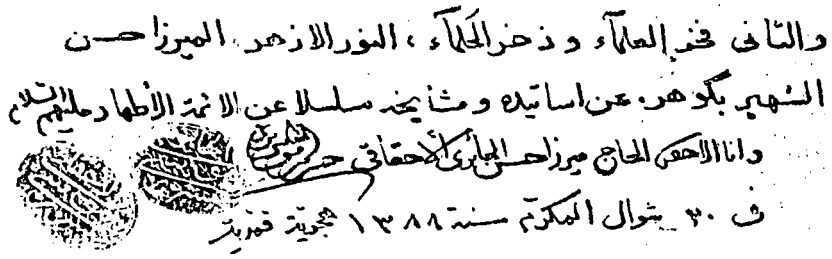 والثانى فخر العلمآء و ذخر الحكمآء ، النور الازهر الميرزا حسن
الشهير بگوهر. عن اساتيده و مشايخه سلسلا عن الائمة الأطهار عليهم السلام
وانا الاحقر الحاج ميرزا حسن الحائرى الأحقاقى
فى ٣٠ شوال المكرم سنة ١٣٨٨ هجرية قمرية